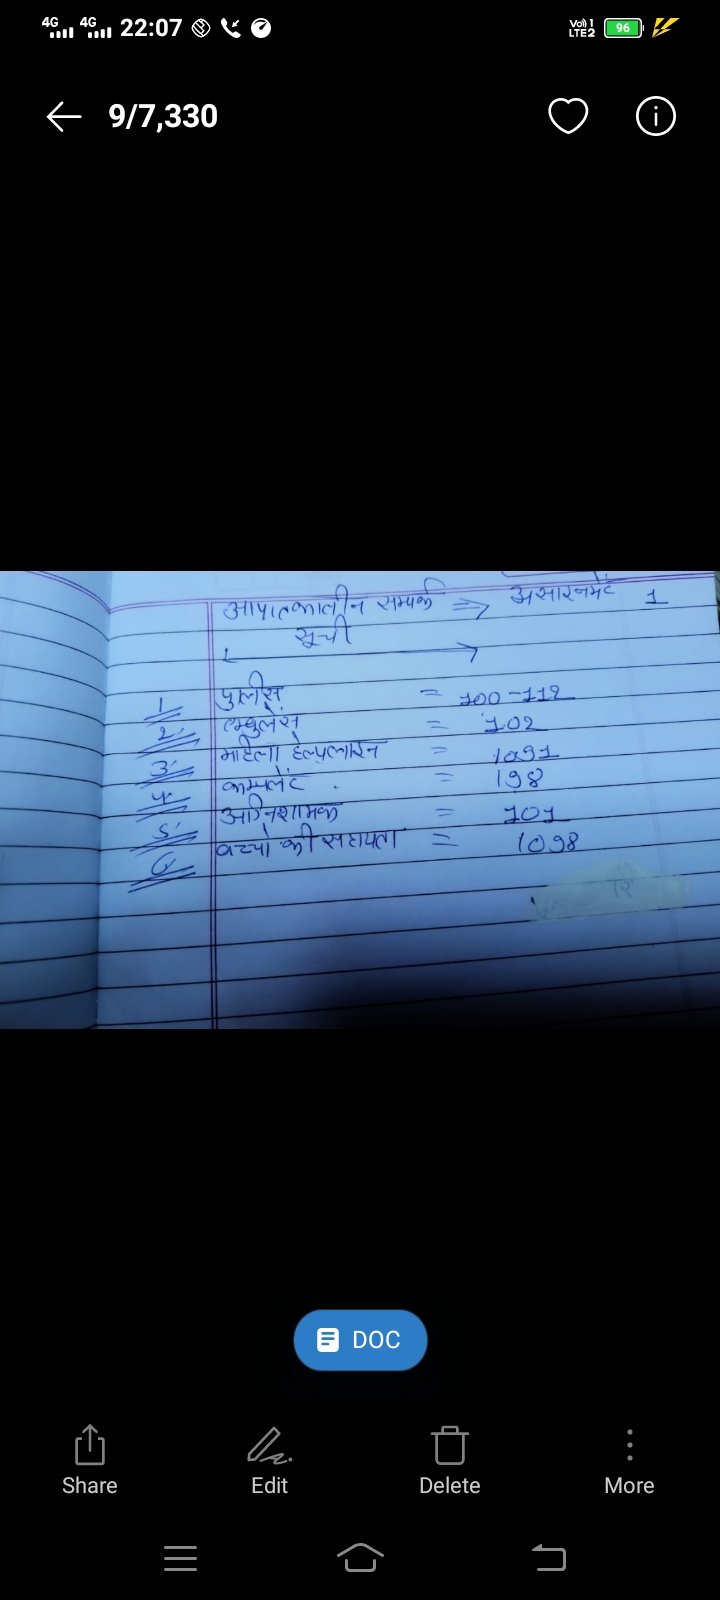 22:07
Vo)) 1
LTE2
96
9/7,330
आपातकालीन सम्पर्क => असाइनमेंट 1
सूची
1 पुलीस = 100-112
2. एम्बुलेंस = 102
3. महिला हेल्पलाइन = 1091
4. कम्पलेंट . = 198
5. अग्निशामक = 101
6 बच्चो की सहायता = 1098
DOC
Share Edit Delete More